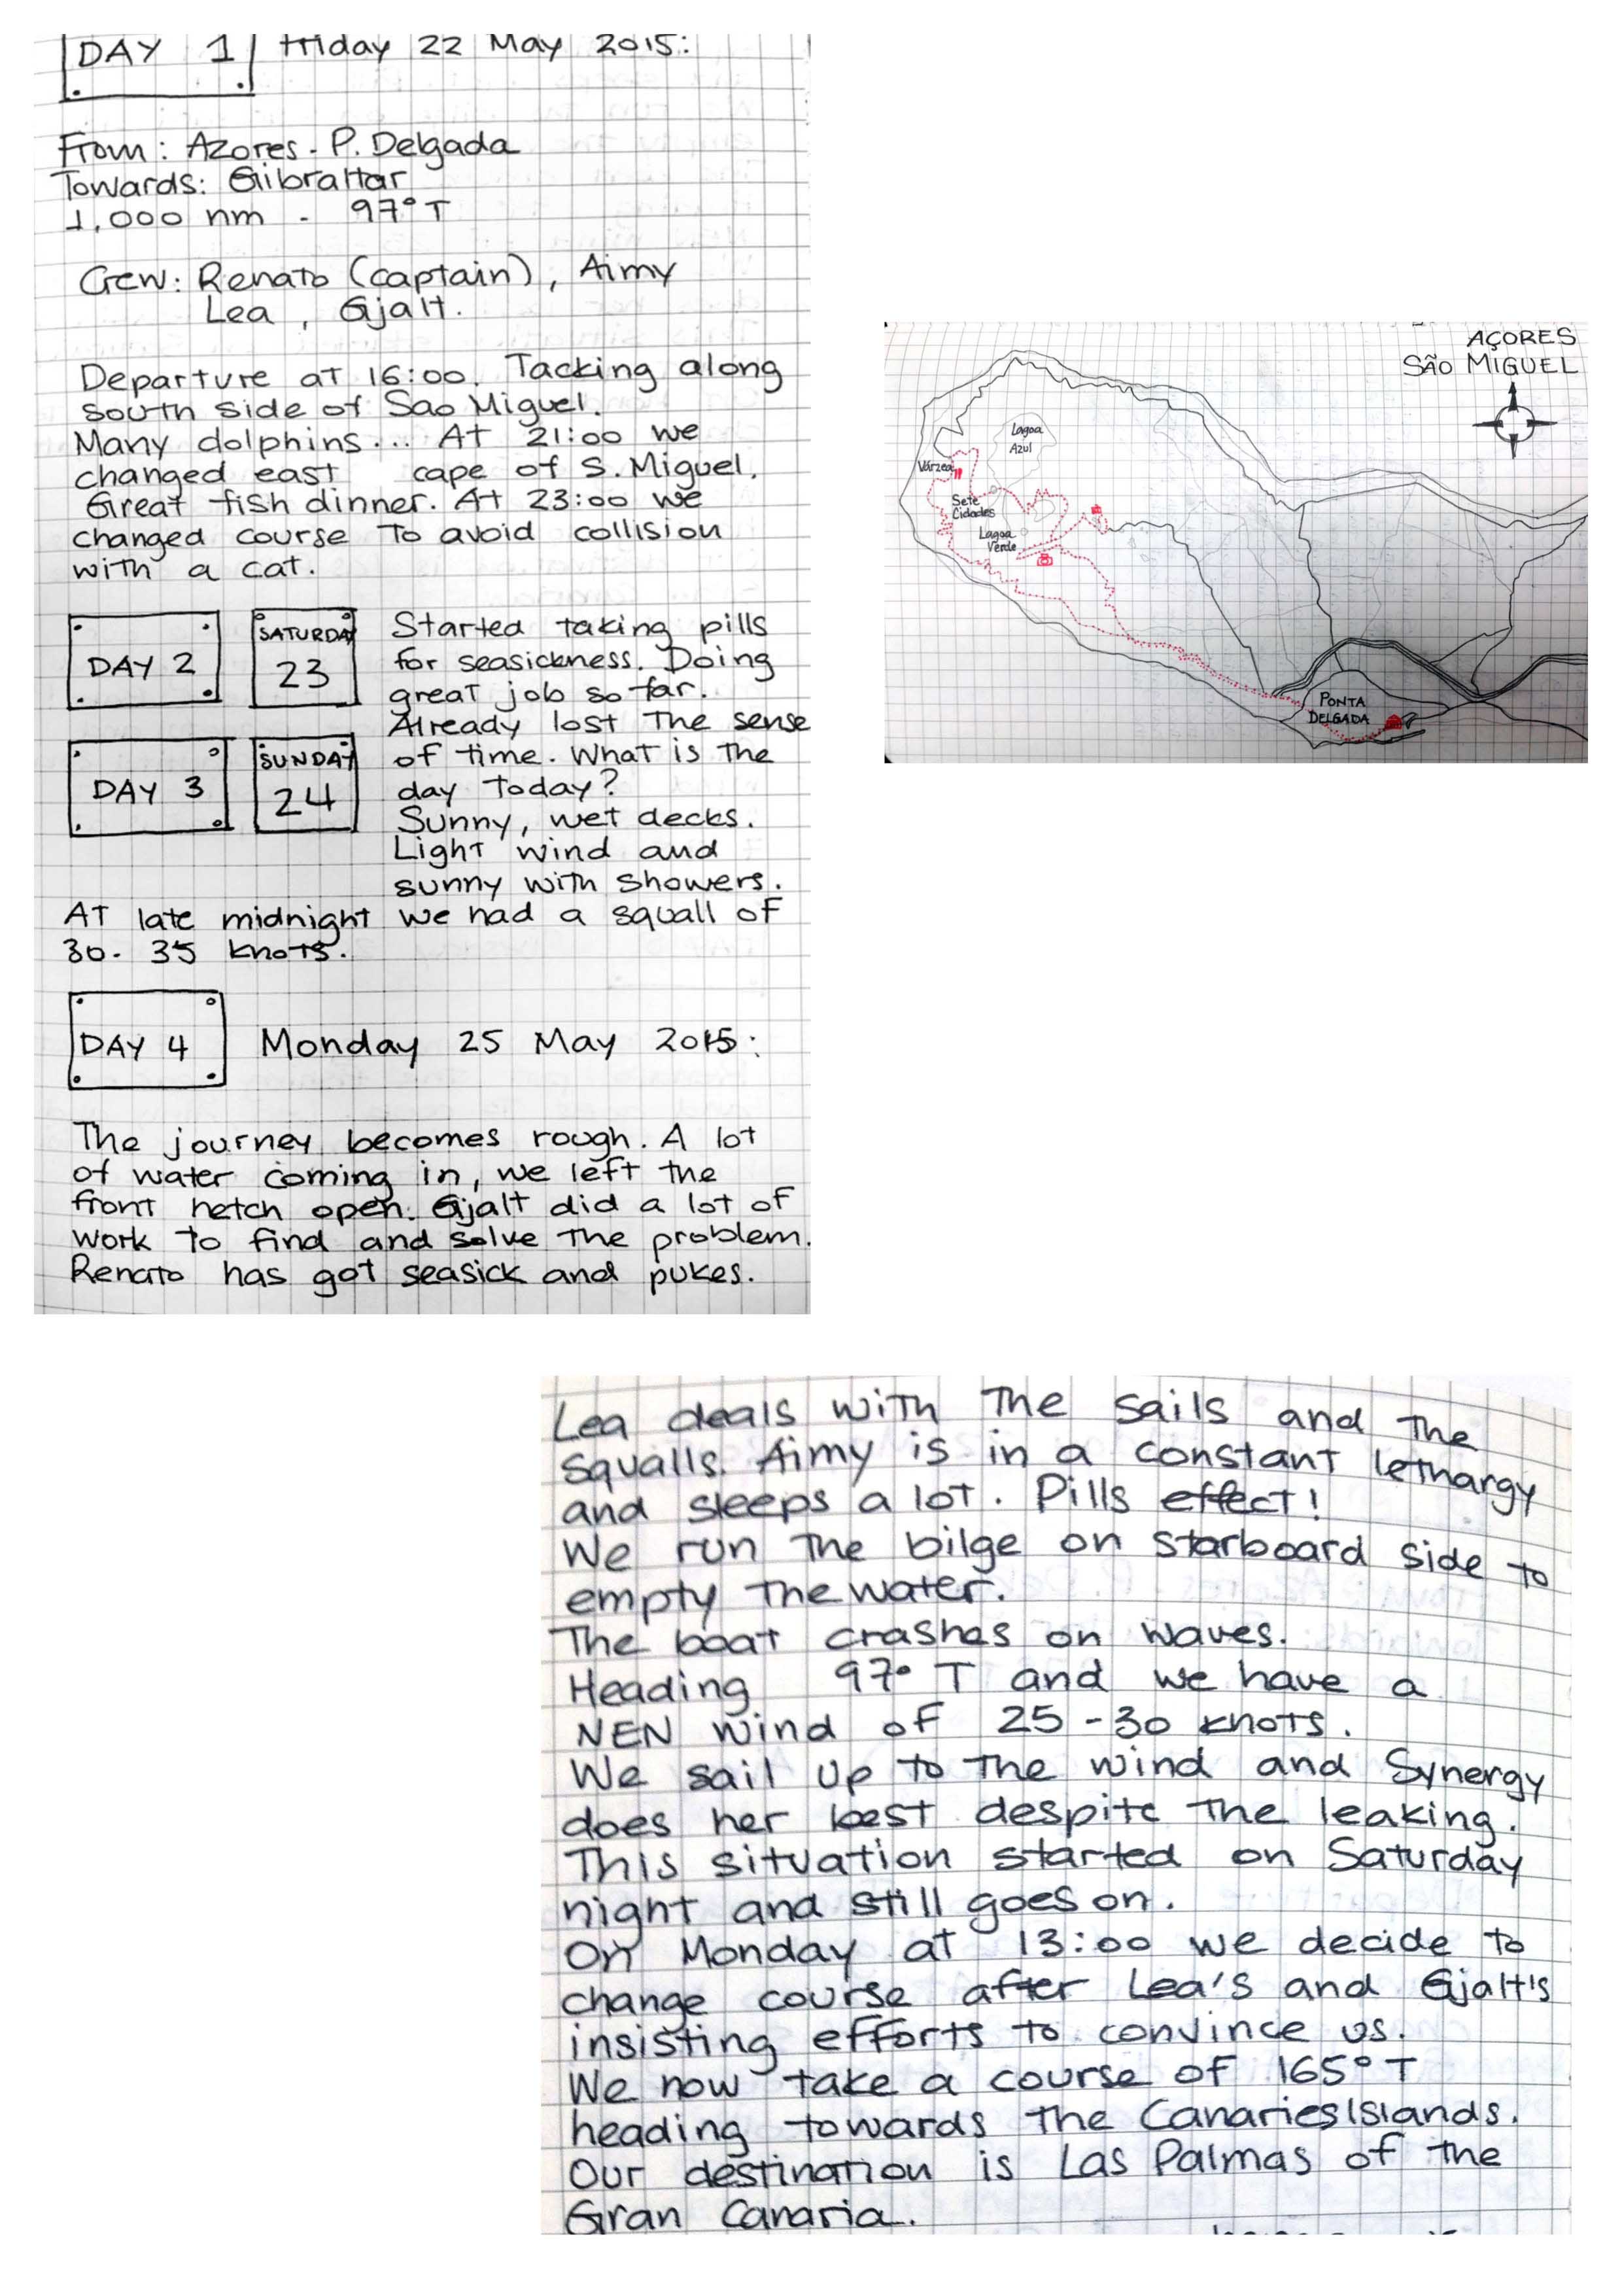 DAY 1 Friday 22 May 2015:
From: Azores - P. Delgada
Towards: Gibraltar
1,000 nm - 97° T
Crew: Renato (captain), Aimy
Lea, Gjalt.
Departure at 16:00. Tacking along
south side of Sao Miguel.
Many dolphins... At 21:00 we
changed east cape of S. Miguel.
Great fish dinner. At 23:00 we
changed course to avoid collision
with a cat.
DAY 2
SATURDAY
23
Started taking pills
for seasickness. Doing
great job so far.
DAY 3
SUNDAY
24
Already lost the sense
of time. What is the
day today?
Sunny, wet decks.
Light wind and
sunny with showers.
At late midnight we had a squall of
30-35 knots.
DAY 4 Monday 25 May 2015:
The journey becomes rough. A lot
of water coming in, we left the
front hetch open. Gjalt did a lot of
work to find and solve the problem.
Renato has got seasick and pukes.
AÇORES
SÃO MIGUEL
Lagoa
Azul
Várzea
Sete
Cidades
Lagoa
Verde
PONTA
DELGADA
Lea deals with the sails and the
squalls. Aimy is in a constant lethargy
and sleeps a lot. Pills effect!
We run the bilge on starboard side to
empty the water.
The boat crashes on waves.
Heading 97° T and we have a
NEN wind of 25-30 knots.
We sail up to the wind and Synergy
does her best despite the leaking.
This situation started on Saturday
night and still goes on.
On Monday at 13:00 we decide to
change course after Lea's and Gjalt's
insisting efforts to convince us.
We now take a course of 165° T
heading towards the Canaries Islands.
Our destination is Las Palmas of the
Gran Canaria.